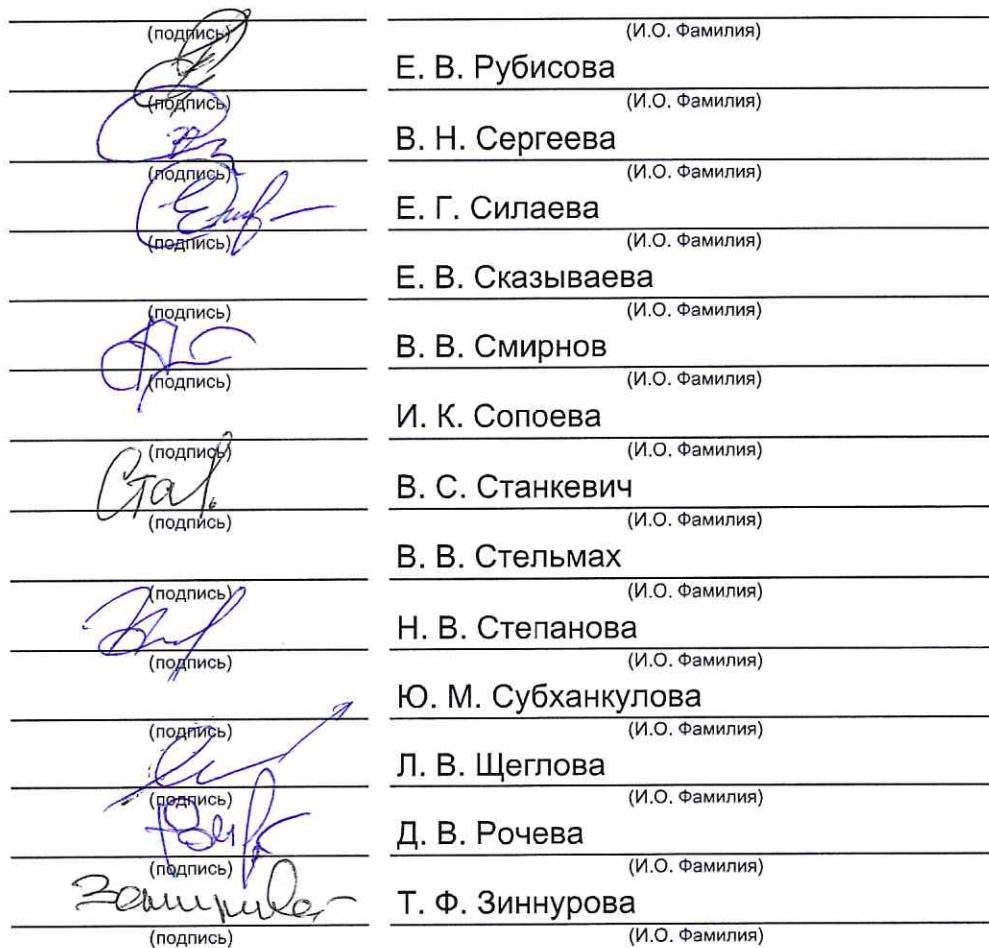 (подпись) (И.О. Фамилия)
Е. В. Рубисова
(подпись) (И.О. Фамилия)
В. Н. Сергеева
(подпись) (И.О. Фамилия)
Е. Г. Силаева
(подпись) (И.О. Фамилия)
Е. В. Сказываева
(подпись) (И.О. Фамилия)
В. В. Смирнов
(подпись) (И.О. Фамилия)
И. К. Сопоева
(подпись) (И.О. Фамилия)
В. С. Станкевич
(подпись) (И.О. Фамилия)
В. В. Стельмах
(подпись) (И.О. Фамилия)
Н. В. Степанова
(подпись) (И.О. Фамилия)
Ю. М. Субханкулова
(подпись) (И.О. Фамилия)
Л. В. Щеглова
(подпись) (И.О. Фамилия)
Д. В. Рочева
(подпись) (И.О. Фамилия)
Т. Ф. Зиннурова
(подпись) (И.О. Фамилия)